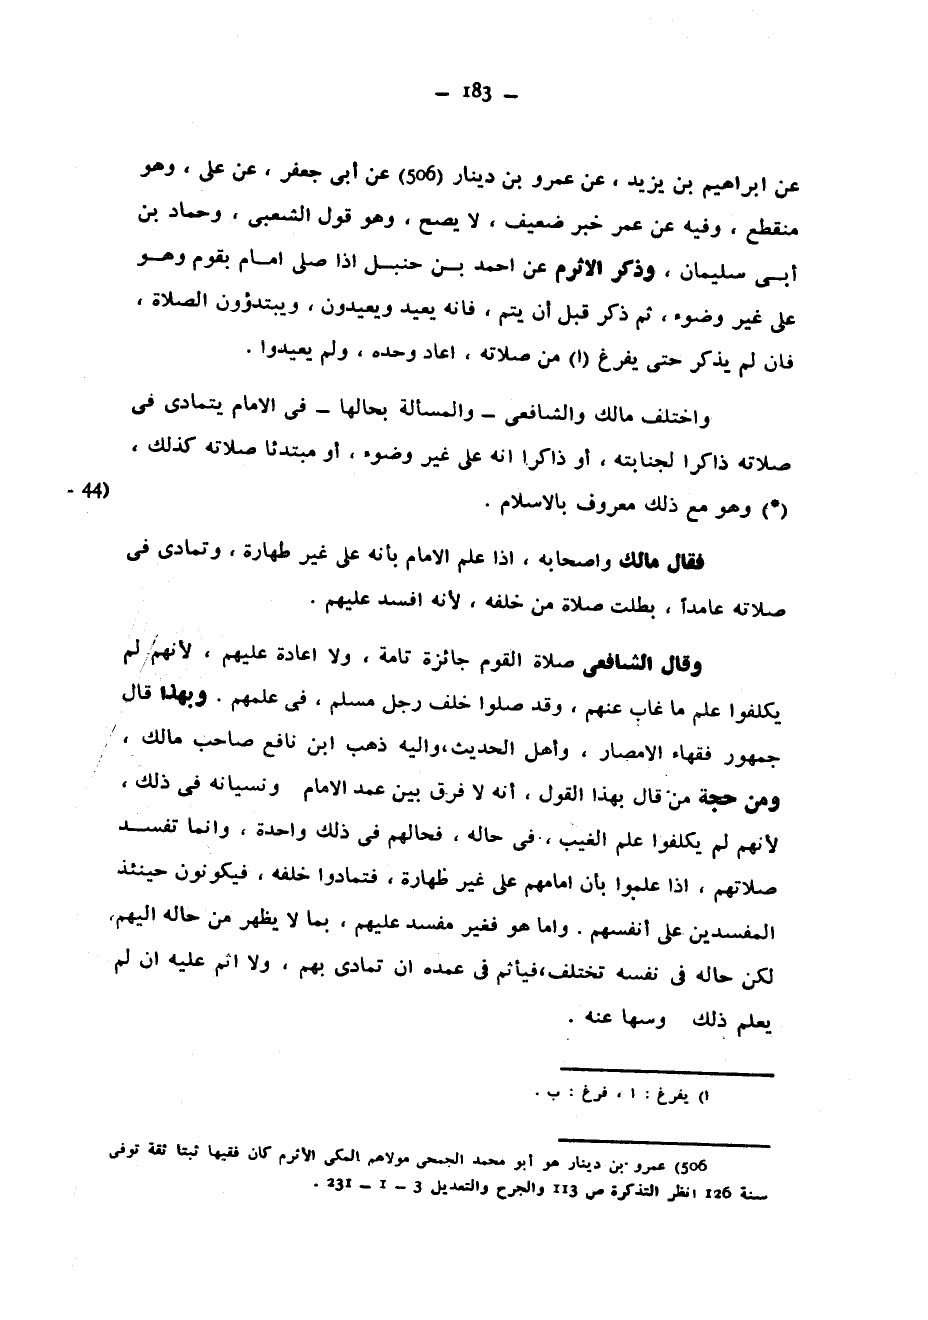 – 183 –
عن ابراهيم بن يزيد ، عن عمرو بن دينار (506) عن أبى جعفر ، عن على ، وهو
منقطع ، وفيه عن عمر خبر ضعيف ، لا يصح ، وهو قول الشعبى ، وحماد بن
أبـى سليمان ، وذكر الاثرم عن احمد بـن حنبـل اذا صلى امـام بقوم وهـو
على غير وضوء ، ثم ذكر قبل أن يتم ، فانه يعيد ويعيدون ، ويبتدؤون الصلاة ،
فان لم يذكر حتى يفرغ (ا) من صلاته ، اعاد وحده ، ولم يعيدوا .
واختلف مالك والشافعى – والمسألة بحالها – فى الامام يتمادى فى
صلاته ذاكرا لجنابته ، أو ذاكرا انه على غير وضوء ، أو مبتدئا صلاته كذلك ،
(*) وهو مع ذلك معروف بالاسلام .
- 44)
فقال مالك واصحابه ، اذا علم الامام بأنه على غير طهارة ، وتمادى فى
صلاته عامداً ، بطلت صلاة من خلفه ، لأنه افسد عليهم .
وقال الشافعى صلاة القوم جائزة تامة ، ولا اعادة عليهم ، لأنهم لم
يكلفوا علم ما غاب عنهم ، وقد صلوا خلف رجل مسلم ، فى علمهم . وبهذا قال
جمهور فقهاء الامصار ، وأهل الحديث،واليه ذهب ابن نافع صاحب مالك ،
ومن حجة من قال بهذا القول ، أنه لا فرق بين عمد الامام ونسيانه فى ذلك ،
لأنهم لم يكلفوا علم الغيب ، فى حاله ، فحالهم فى ذلك واحدة ، وانما تفســد
صلاتهم ، اذا علموا بأن امامهم على غير طهارة ، فتمادوا خلفه ، فيكونون حينئذ
المفسدين على أنفسهم . واما هو فغير مفسد عليهم ، بما لا يظهر من حاله اليهم،
لكن حاله فى نفسه تختلف،فيأثم فى عمده ان تمادى بهم ، ولا اثم عليه ان لم
يعلم ذلك وسها عنه .
ا) يفرغ : ا ، فرغ : ب .
506) عمرو بن دينار هو أبو محمد الجمحى مولاهم المكى الأثرم كان فقيها ثبتا ثقة توفى
سنة 126 انظر التذكرة ص 113 والجرح والتعديل 3 – 1 – 231 .